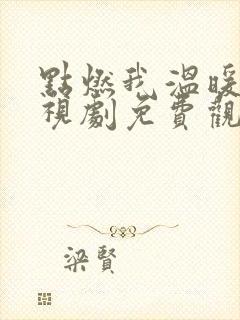 點燃我,溫暖
視劇免費觀
梁賢